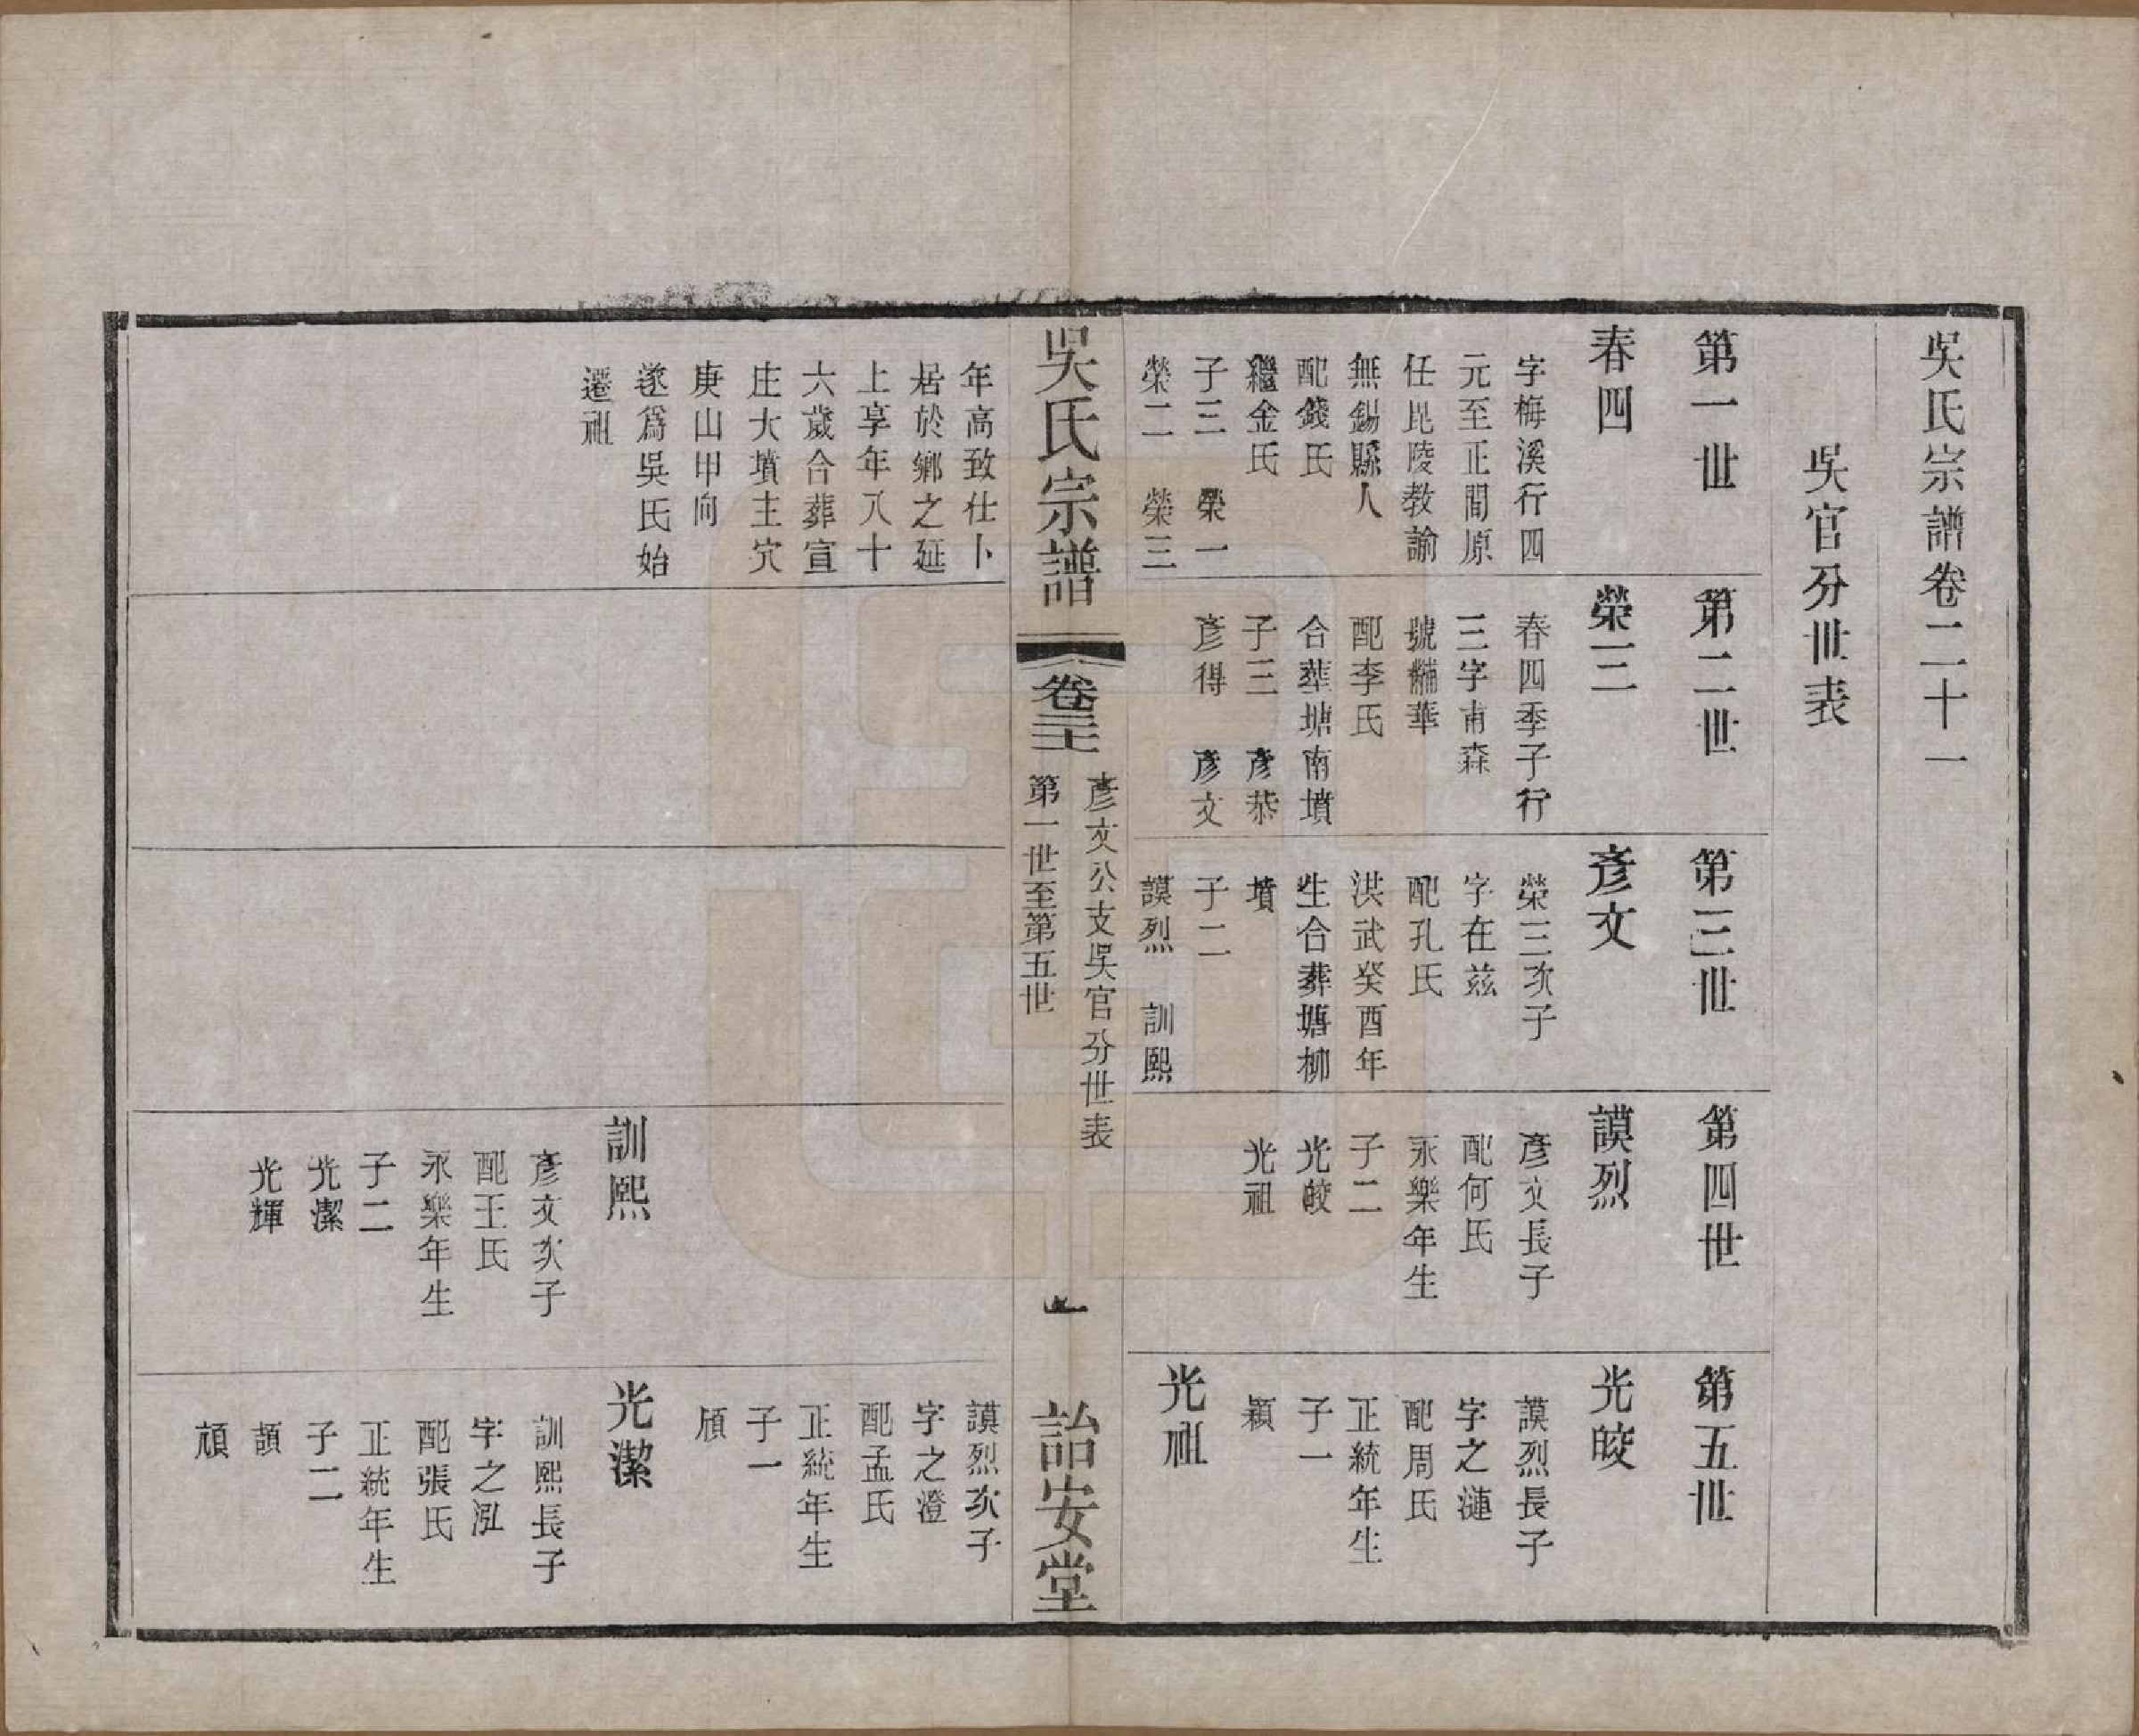 吳氏宗譜卷二十一
吳官分世表
第一世
春四
字梅溪行四
元至正間原
任毘陵教諭
無錫縣人
配錢氏
繼金氏
子三 榮一
榮二 榮三
第二世
榮三
春四季子行
三字甫森
號黼華
配李氏
合葬塘南墳
子三 彥恭
彥得 彥文
第三世
彥文
榮三次子
字在茲
配孔氏
洪武癸酉年
生合葬塘柳
墳
子二
謨烈 訓熙
第四世
謨烈
彥文長子
配何氏
永樂年生
子二
光皎
光祖
第五世
光皎
謨烈長子
字之漣
配周氏
正統年生
子一
穎
光祖
吳氏宗譜
卷二十一
彥文公支吳官分世表
第一世至第五世
一
詒安堂
年高致仕卜
居於鄉之延
上享年八十
六歲合葬宣
庄大墳主穴
庚山甲向
遂爲吳氏始
遷祖
訓熙
彥文次子
配王氏
永樂年生
子二
光潔
光輝
謨烈次子
字之澄
配孟氏
正統年生
子一
頎
光潔
訓熙長子
字之泓
配張氏
正統年生
子二
頡
頏